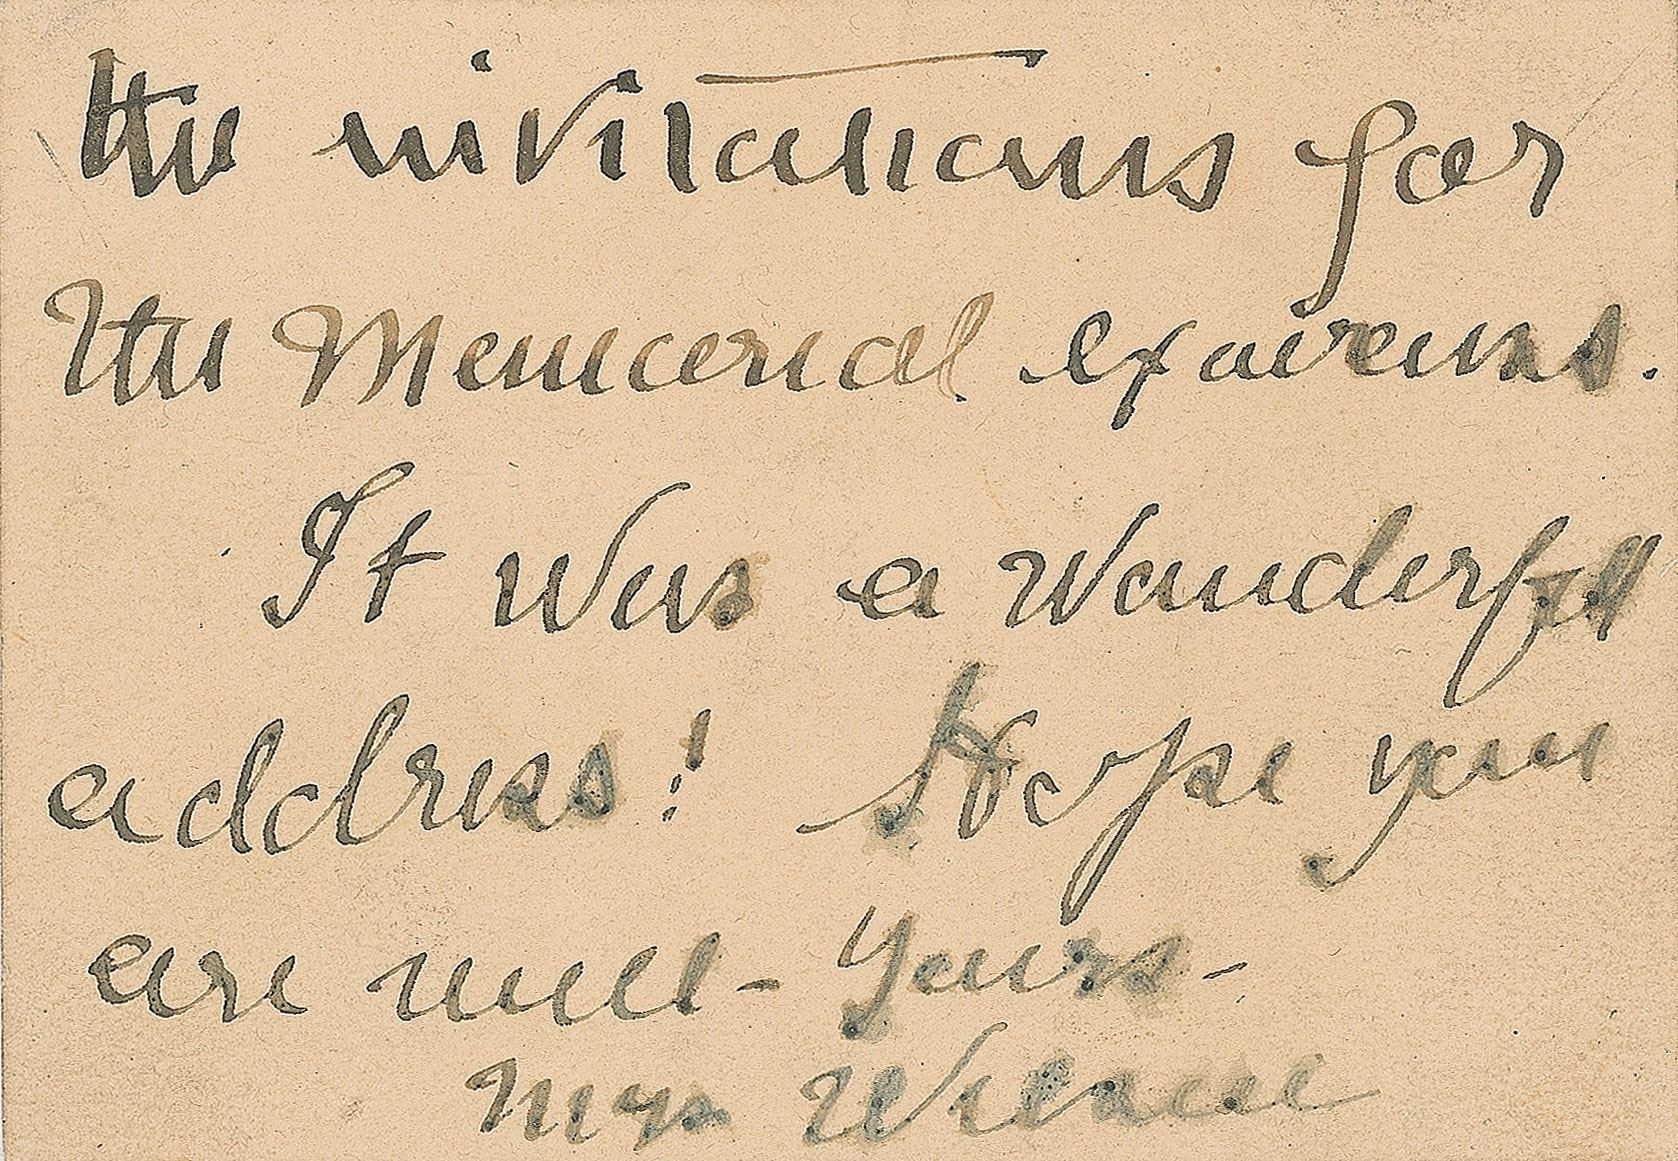 the invitations for
the Memorial exercises.
It was a wonderful
address! Hope you
are well - Yours -
Mrs Wilson